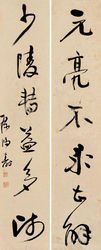 元亮不求甚解
少陵轉益多師